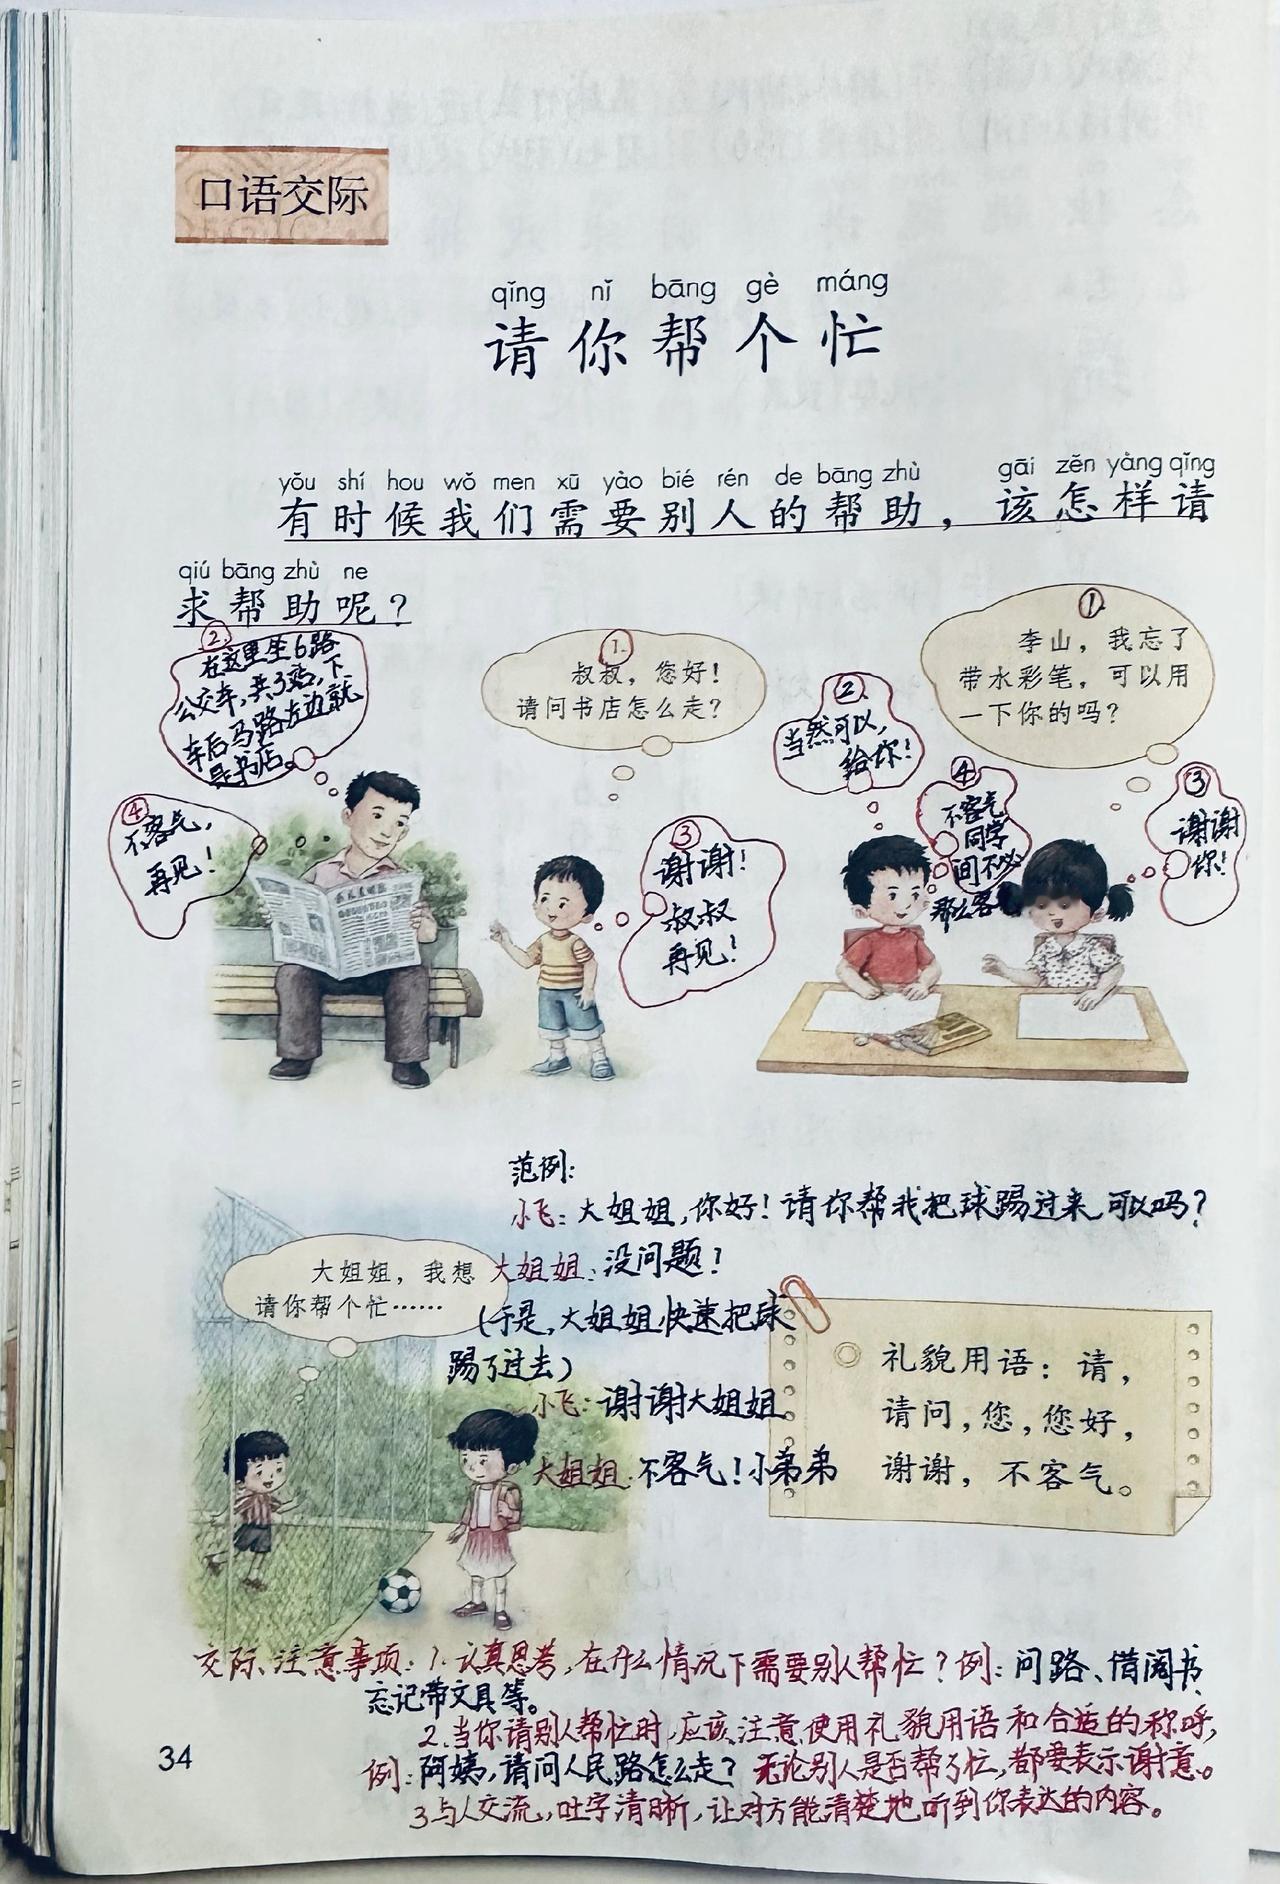 口语交际
qǐng nǐ bāng gè máng
请你帮个忙
yǒu shí hou wǒ men xū yào bié rén de bāng zhù gāi zěn yàng qǐng
有时候我们需要别人的帮助，该怎样请
qiú bāng zhù ne
求帮助呢？
②
在这里坐6路
公交车，共3站，下
车后马路左边就
是书店。
④
不客气，
再见！
1.
叔叔，您好！
请问书店怎么走？
③
谢谢！
叔叔
再见！
①
李山，我忘了
带水彩笔，可以用
一下你的吗？
②
当然可以，
给你！
④
不客气
同学
间不必
那么客气
③
谢谢
你！
范例：
小飞：大姐姐，你好！请你帮我把球踢过来，可以吗？
大姐姐，我想
请你帮个忙……
大姐姐：没问题！
（于是，大姐姐快速把球
踢了过去）
小飞：谢谢大姐姐
大姐姐：不客气！小弟弟
礼貌用语：请，
请问，您，您好，
谢谢，不客气。
交际注意事项：1.认真思考，在什么情况下需要别人帮忙？例：问路、借阅书、
忘记带文具等。
2.当你请别人帮忙时，应该注意使用礼貌用语和合适的称呼，
例：阿姨，请问人民路怎么走？无论别人是否帮了忙，都要表示谢意。
3.与人交流，吐字清晰，让对方能清楚地听到你表达的内容。
34